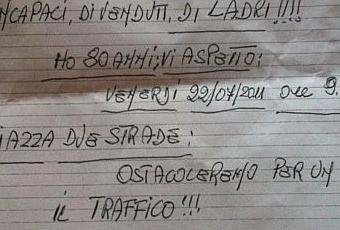 NCAPACI, DI VENDUTI, DI LADRI!!!!
HO 80 ANNI; VI ASPETTO;
VENERDI 22/07/2011 ORE 9.
IAZZA DUE STRADE;
OSTACOLEREMO PER UN
IL TRAFFICO!!!